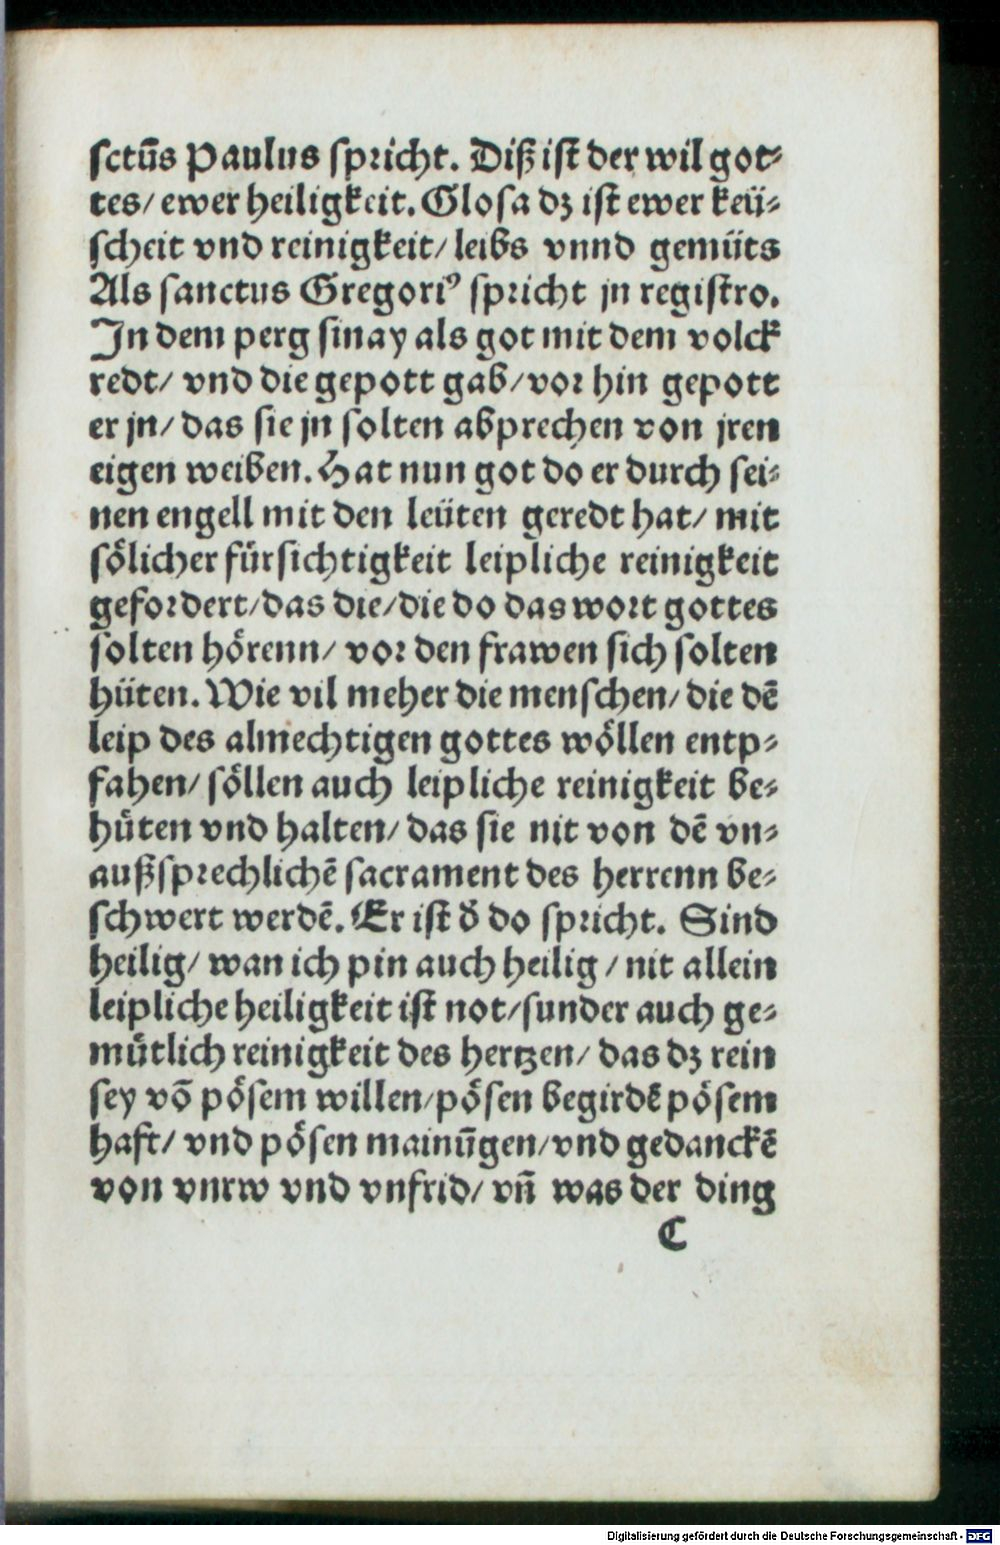 sctūs Paulus spricht. Diß ist der wil got⸗
tes/ ewer heiligkeit. Glosa dz ist ewer keü⸗
scheit vnd reinigkeit/ leibs vnnd gemüts
Als sanctus Gregoriꝰ spricht jn registro.
In dem perg sinay als got mit dem volck
redt/ vnd die gepott gab/ vor hin gepott
er jn/ das sie jn solten abprechen von jren
eigen weiben. Hat nun got do er durch sei⸗
nen engell mit den leüten geredt hat/ mit
sölicher fürsichtigkeit leipliche reinigkeit
gefordert/ das die/ die do das wort gottes
solten hörenn/ vor den frawen sich solten
hüten. Wie vil meher die menschen/ die dē
leip des almechtigen gottes wöllen entp⸗
fahen/ söllen auch leipliche reinigkeit be⸗
hüten vnd halten/ das sie nit von dē vn⸗
außsprechlichē sacrament des herrenn be⸗
schwert werdē. Er ist d̛ do spricht. Sind
heilig/ wan ich pin auch heilig / nit allein
leipliche heiligkeit ist not/ sunder auch ge⸗
mütlich reinigkeit des hertzen/ das dz rein
sey vō pösem willen/ pösen begirdē pösem
haft/ vnd pösen mainūgen/ vnd gedanckē
von vnrw vnd vnfrid/ vñ was der ding
C
Digitalisierung gefördert durch die Deutsche Forschungsgemeinschaft - DFG